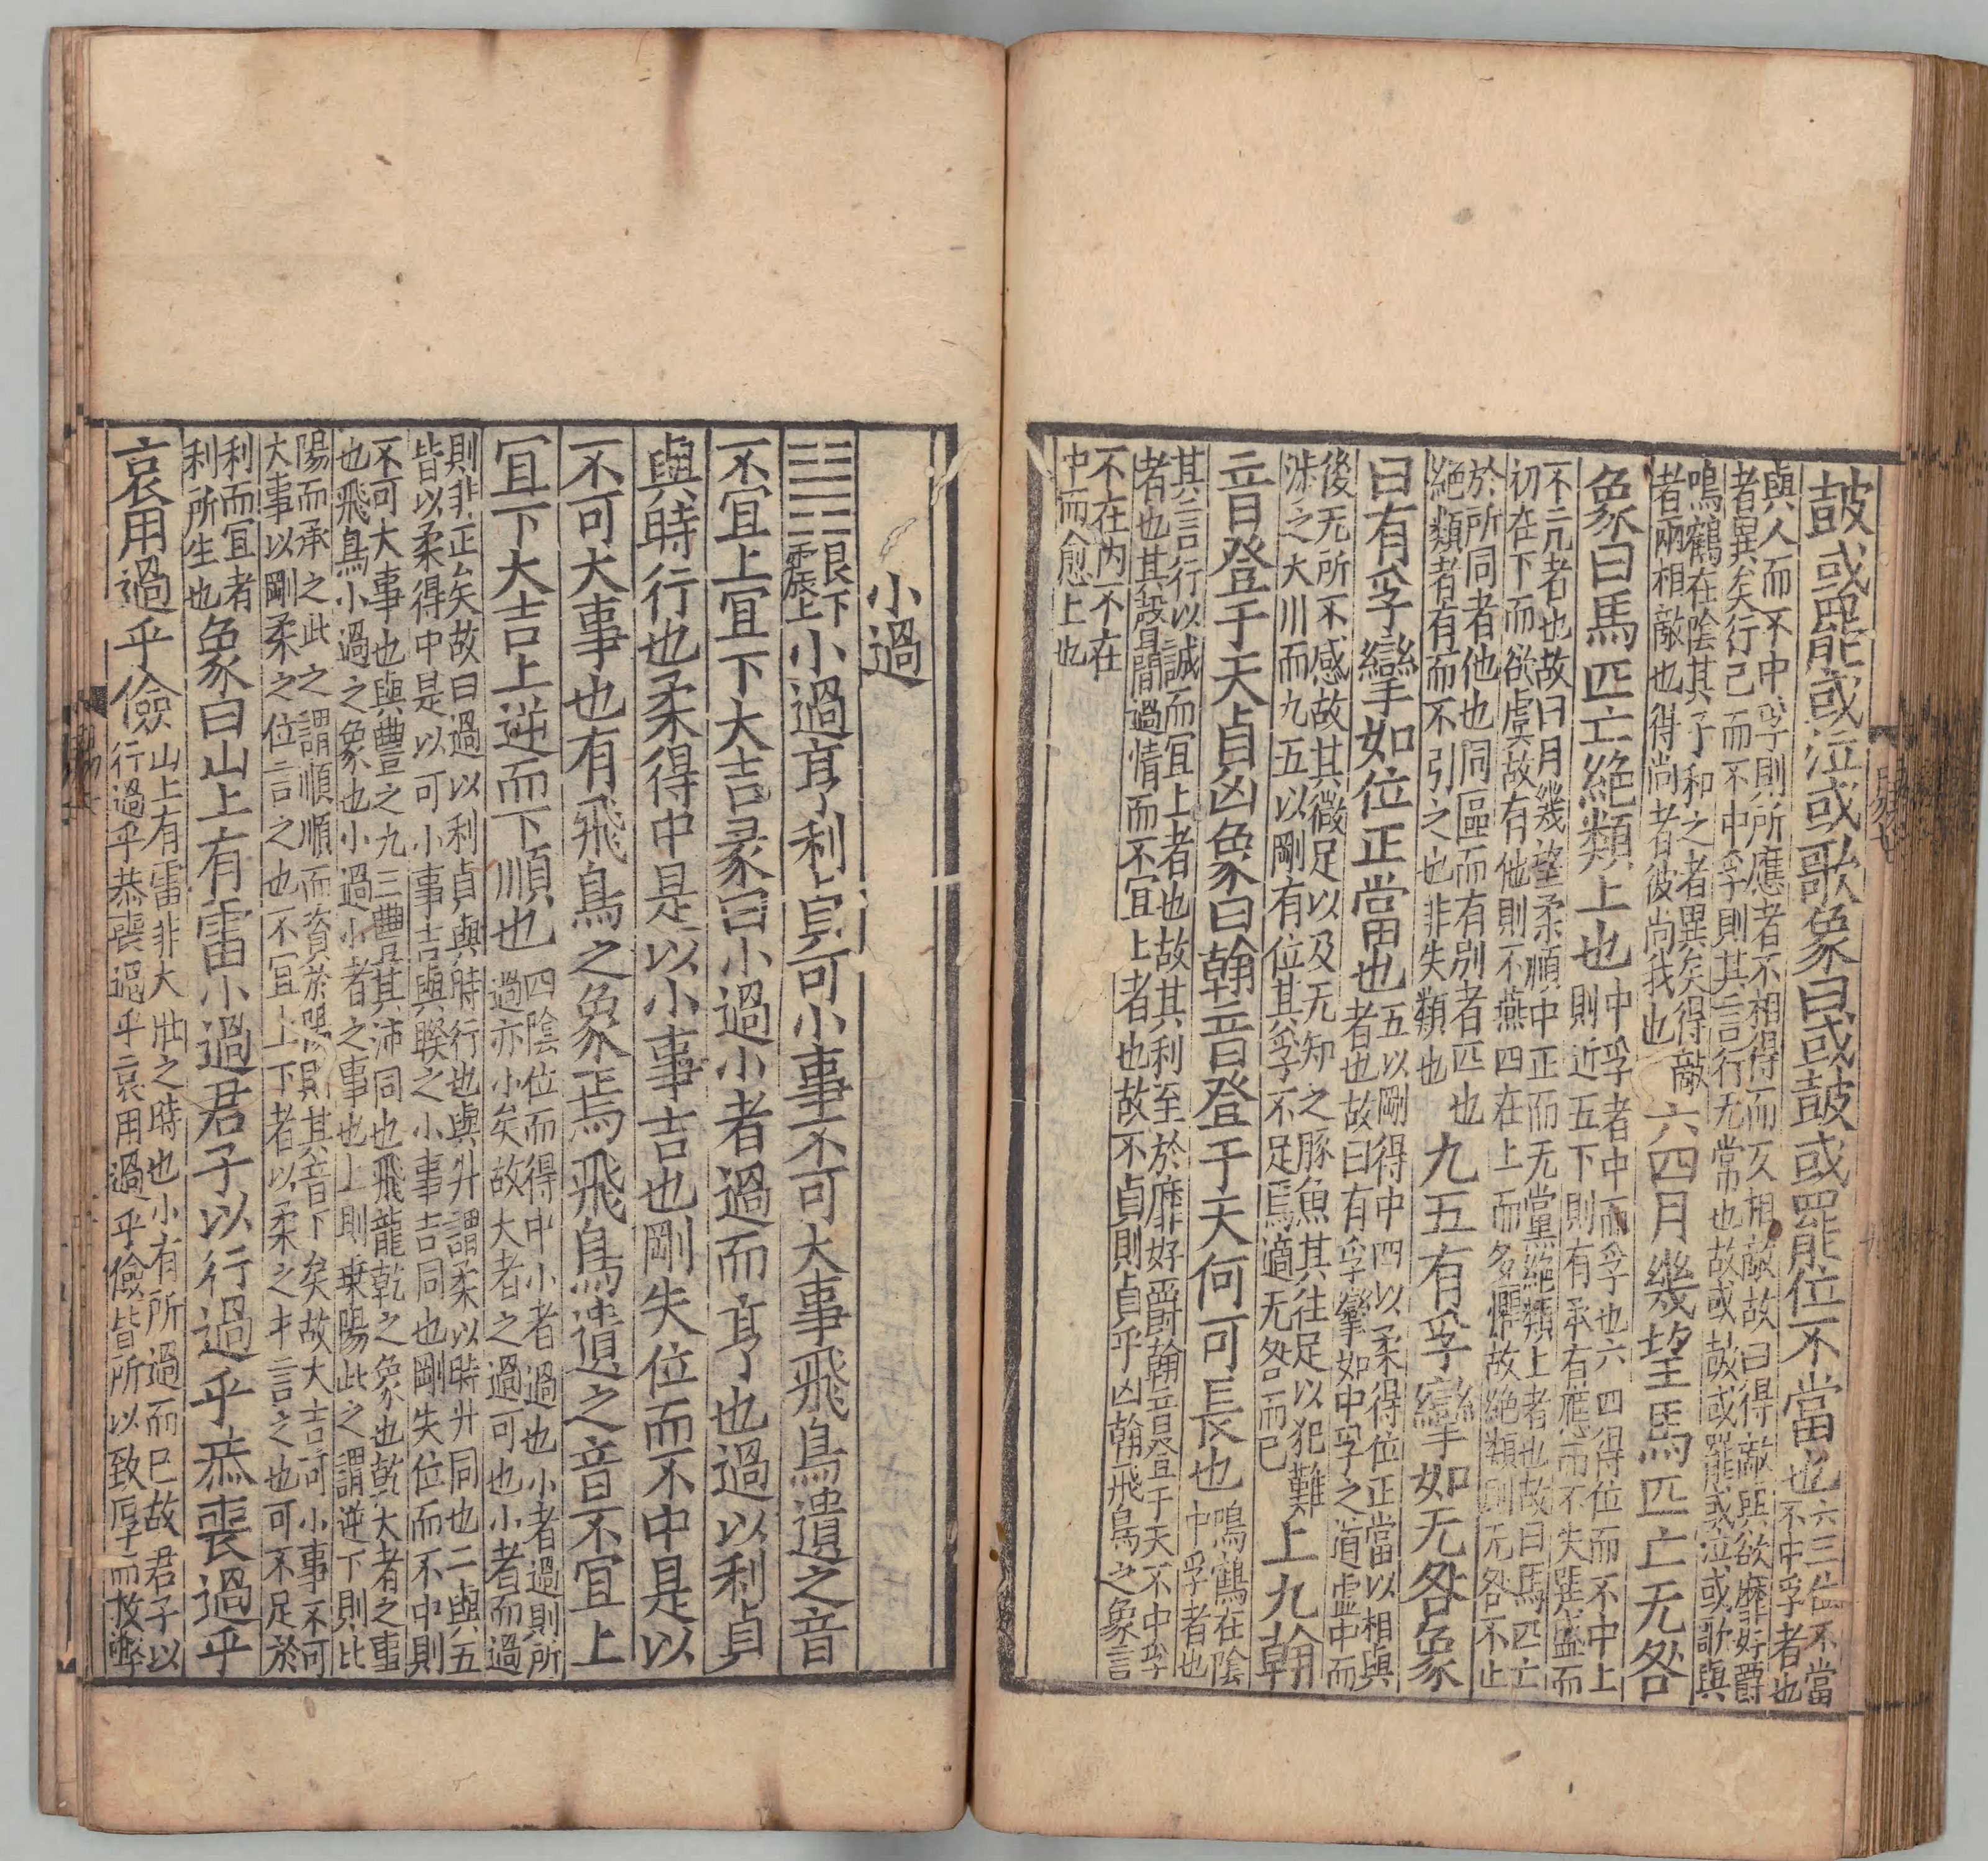 鼓或罷或泣或歌象曰或鼓或罷位不當也六三位不當
也不中孚者也
與人而不中孚則所應者不相得而又相敵故曰得敵與欲靡好爵
者異矣行己而不中孚則其言行无常也故或鼓或罷或泣或歌與
鳴鶴在陰其子和之者異矣得敵
者兩相敵也得尚者彼尚我也
六四月幾望馬匹亡无咎
象曰馬匹亡絶類上也
中孚者中而孚也六四得位而不中上
則近五下則有承有應而不失匪盛而
不亢者也故曰月幾望柔順中正而无黨絶類上者也故曰馬匹亡
初在下而欲虞故有他則不燕四在上而多懼故絶類則无咎不止
於所同者他也同區而有別者匹也
絶類者有而不引之也非失類也
九五有孚攣如无咎象
曰有孚攣如位正當也
五以剛得中四以柔得位正當以相與
者也故曰有孚攣如中孚之道虛中而
後无所不感故其微足以及无知之豚魚其往足以犯難
涉之大川而九五以剛有位其孚不足焉適无咎而已
上九翰
音登于天貞凶象曰翰音登于天何可長也
鳴鶴在陰
中孚者也
其言行以誠而宜上者也故其利至於靡好爵翰音登于天不中孚
者也其殼聲聞過情而不宜上者也故不貞則貞乎凶翰飛鳥之象言
不在內不在
中而愈上也
小過
艮下
震上
小過亨利貞可小事不可大事飛鳥遺之音
不宜上宜下大吉彖曰小過小者過而亨也過以利貞
與時行也柔得中是以小事吉也剛失位而不中是以
不可大事也有飛鳥之象焉飛鳥遺之音不宜上
宜下大吉上逆而下順也
四陰位而得中小者過也小者過則所
過亦小矣故大者之過可也小者而過
則非正矣故曰過以利貞與時行也與升謂柔以時升同也二與五
皆以柔得中是以可小事吉與睽之小事吉同也剛失位而不中則
不可大事也與豐之九三豐其沛同也飛龍乾之象也乾大者之事
也飛鳥小過之象也小過小者之事也上則乗陽此之謂逆下則比
陽而承之此之謂順順而資於陽則其音下矣故大吉可小事不可
大事以剛柔之位言之也不宜上下者以柔之才言之也可不足於
利而宜者
利所生也
象曰山上有雷小過君子以行過乎恭喪過乎
哀用過乎儉
山上有雷非大壯之時也小有所過而已故君子以
行過乎恭喪過乎哀用過乎儉皆所以致厚而救